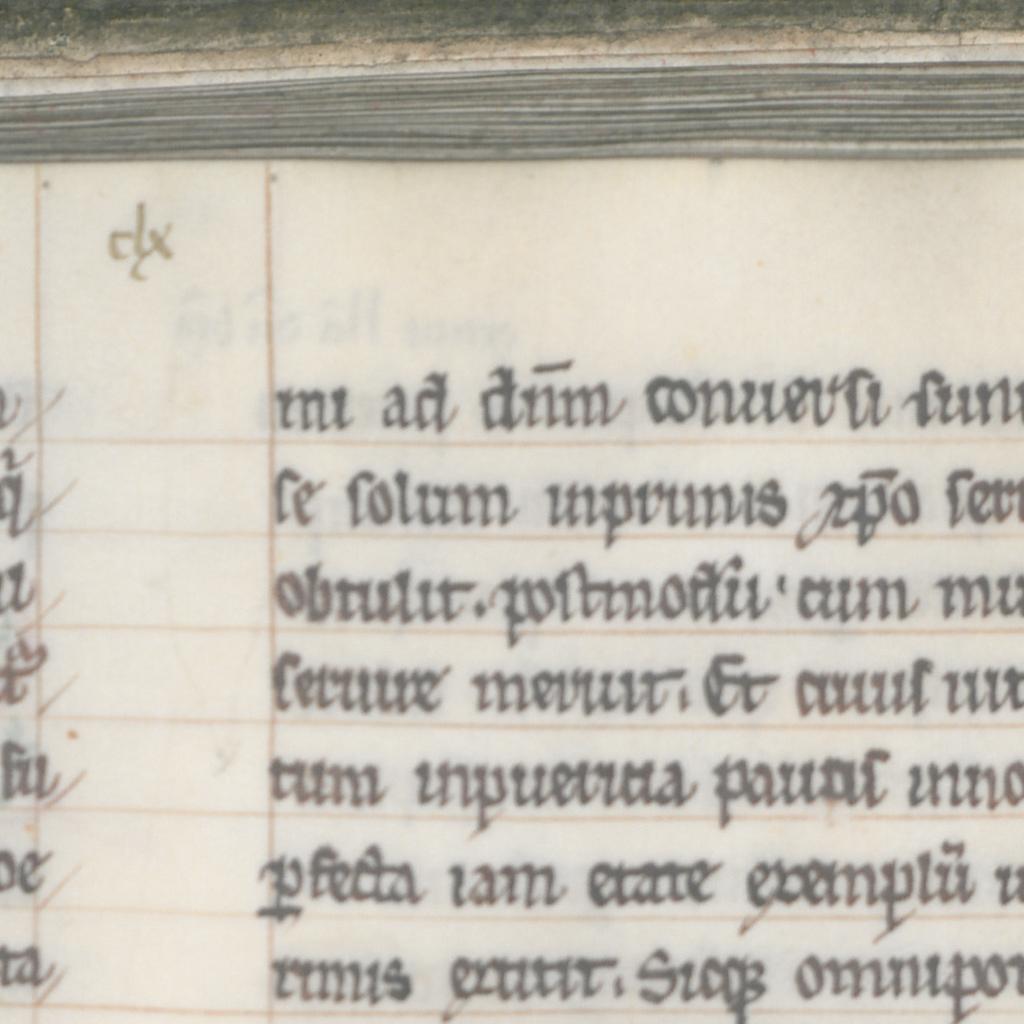 clx
mi ad dn̄m conuersi sunt
se solum inprimis xp̄o seru
obtulit. postmodū cum mu
seruire meruit. Et cuius uit
tum inpuericia paucis inno
ꝑfecta iam etate exemplū u
rimis extitit. Sicqꝫ omnipot